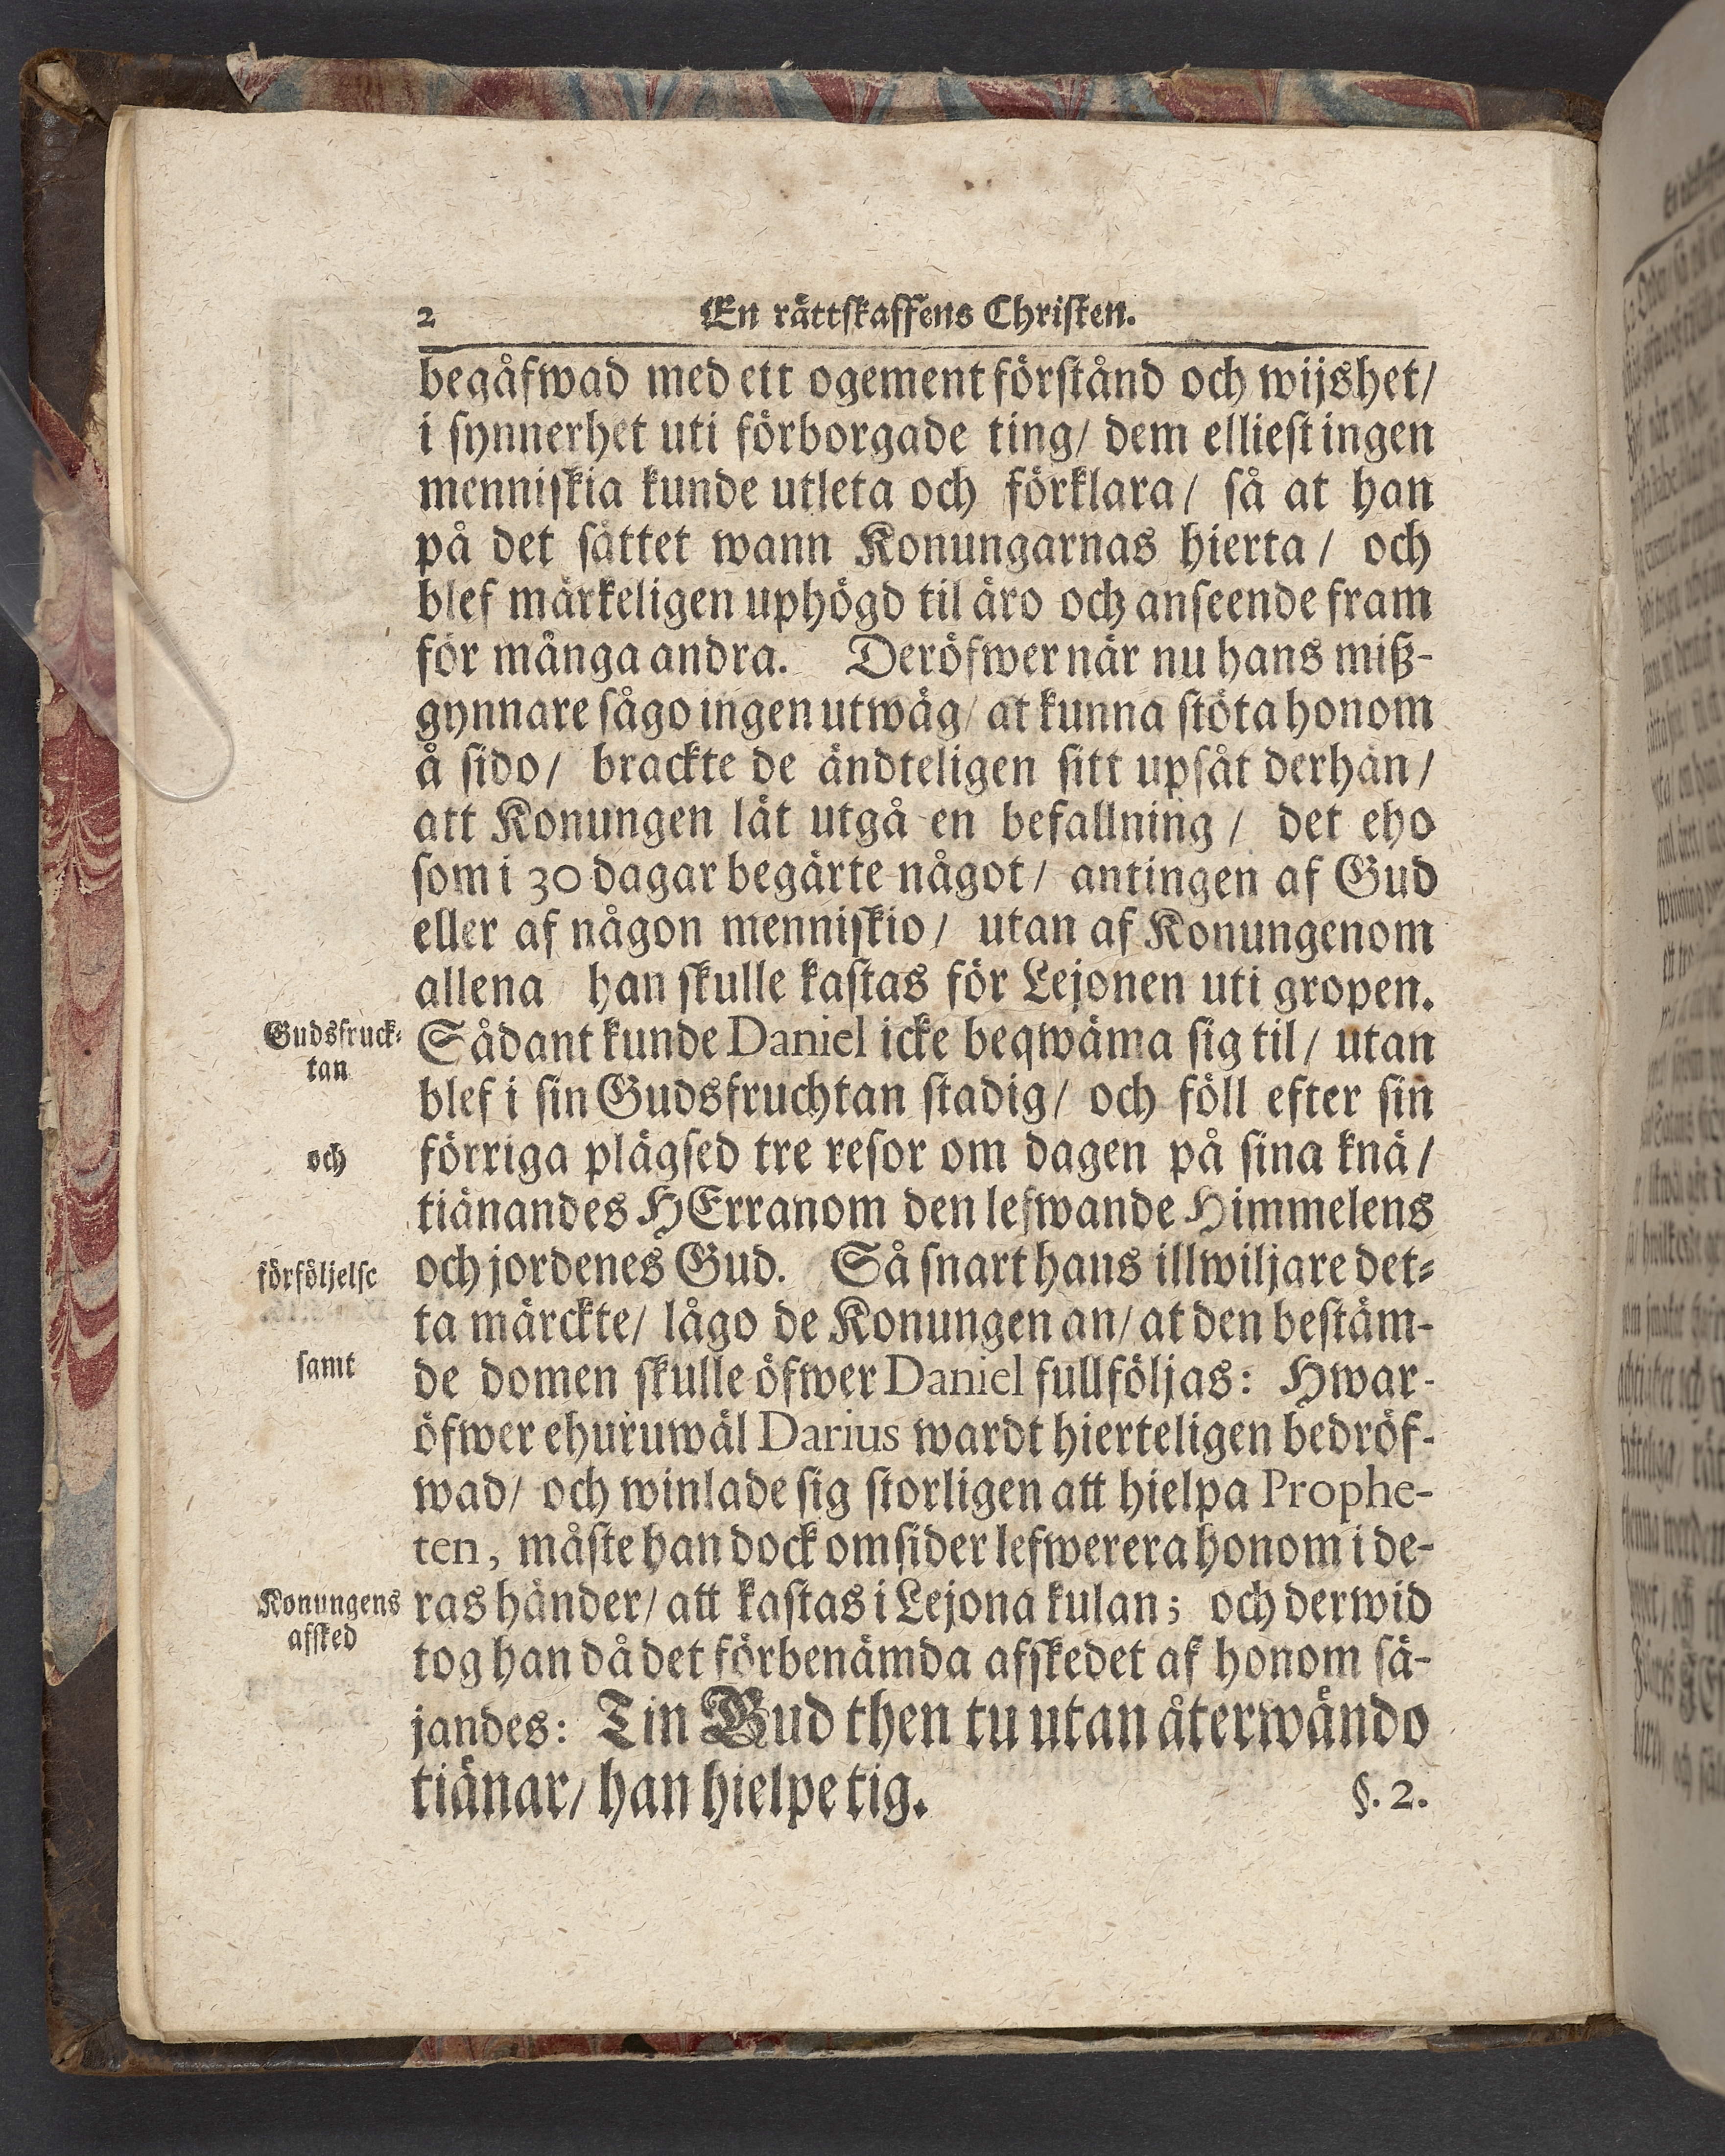 2 En rättskaffens Christen.
begåfwad med ett ogement förstånd och wijshet/
i synnerhet uti förborgade ting/ dem elliest ingen
menniskia kunde utleta och förklara/ så at han
på det sättet wann Konungarnas hierta/ och
blef märkeligen uphögd til äro och anseende fram
för många andra. Deröfwer när nu hans miß-
gynnare sågo ingen utwäg/ at kunna stöta honom
å sido/ brackte de ändteligen sitt upsåt derhän/
att Konungen lät utgå en befallning/ det eho
som i 30 dagar begärte något/ antingen af Gud
eller af någon menniskio/ utan af Konungenom
allena han skulle kastas för Lejonen uti gropen.
Gudsfruck-
tan
Sådant kunde Daniel icke beqwäma sig til/ utan
blef i sin Gudsfruchtan stadig/ och föll efter sin
och
förriga plägsed tre resor om dagen på sina knä/
tiänandes HErranom den lefwande Himmelens
förföljelse
och jordenes Gud. Så snart hans illwiljare det-
ta märckte/ lågo de Konungen an/ at den bestäm-
samt
de domen skulle öfwer Daniel fullföljas: Hwar-
öfwer ehuruwäl Darius wardt hierteligen bedröf-
wad/ och winlade sig storligen att hielpa Prophe-
ten, måste han dock omsider lefwerera honom i de-
Konungens
afsked
ras händer/ att kastas i Lejona kulan; och derwid
tog han då det förbenämda afskedet af honom sä-
jandes: Tin Gud then tu utan återwändo
tiänar/ han hielpe tig.
§. 2.